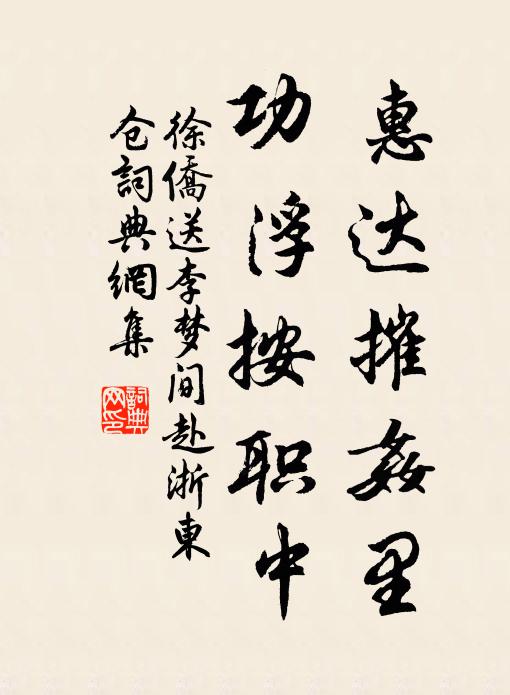 惠达摧姦里
功浮按职中
徐僑送李梦间赴浙東
仓詞典網集
詞典
网印